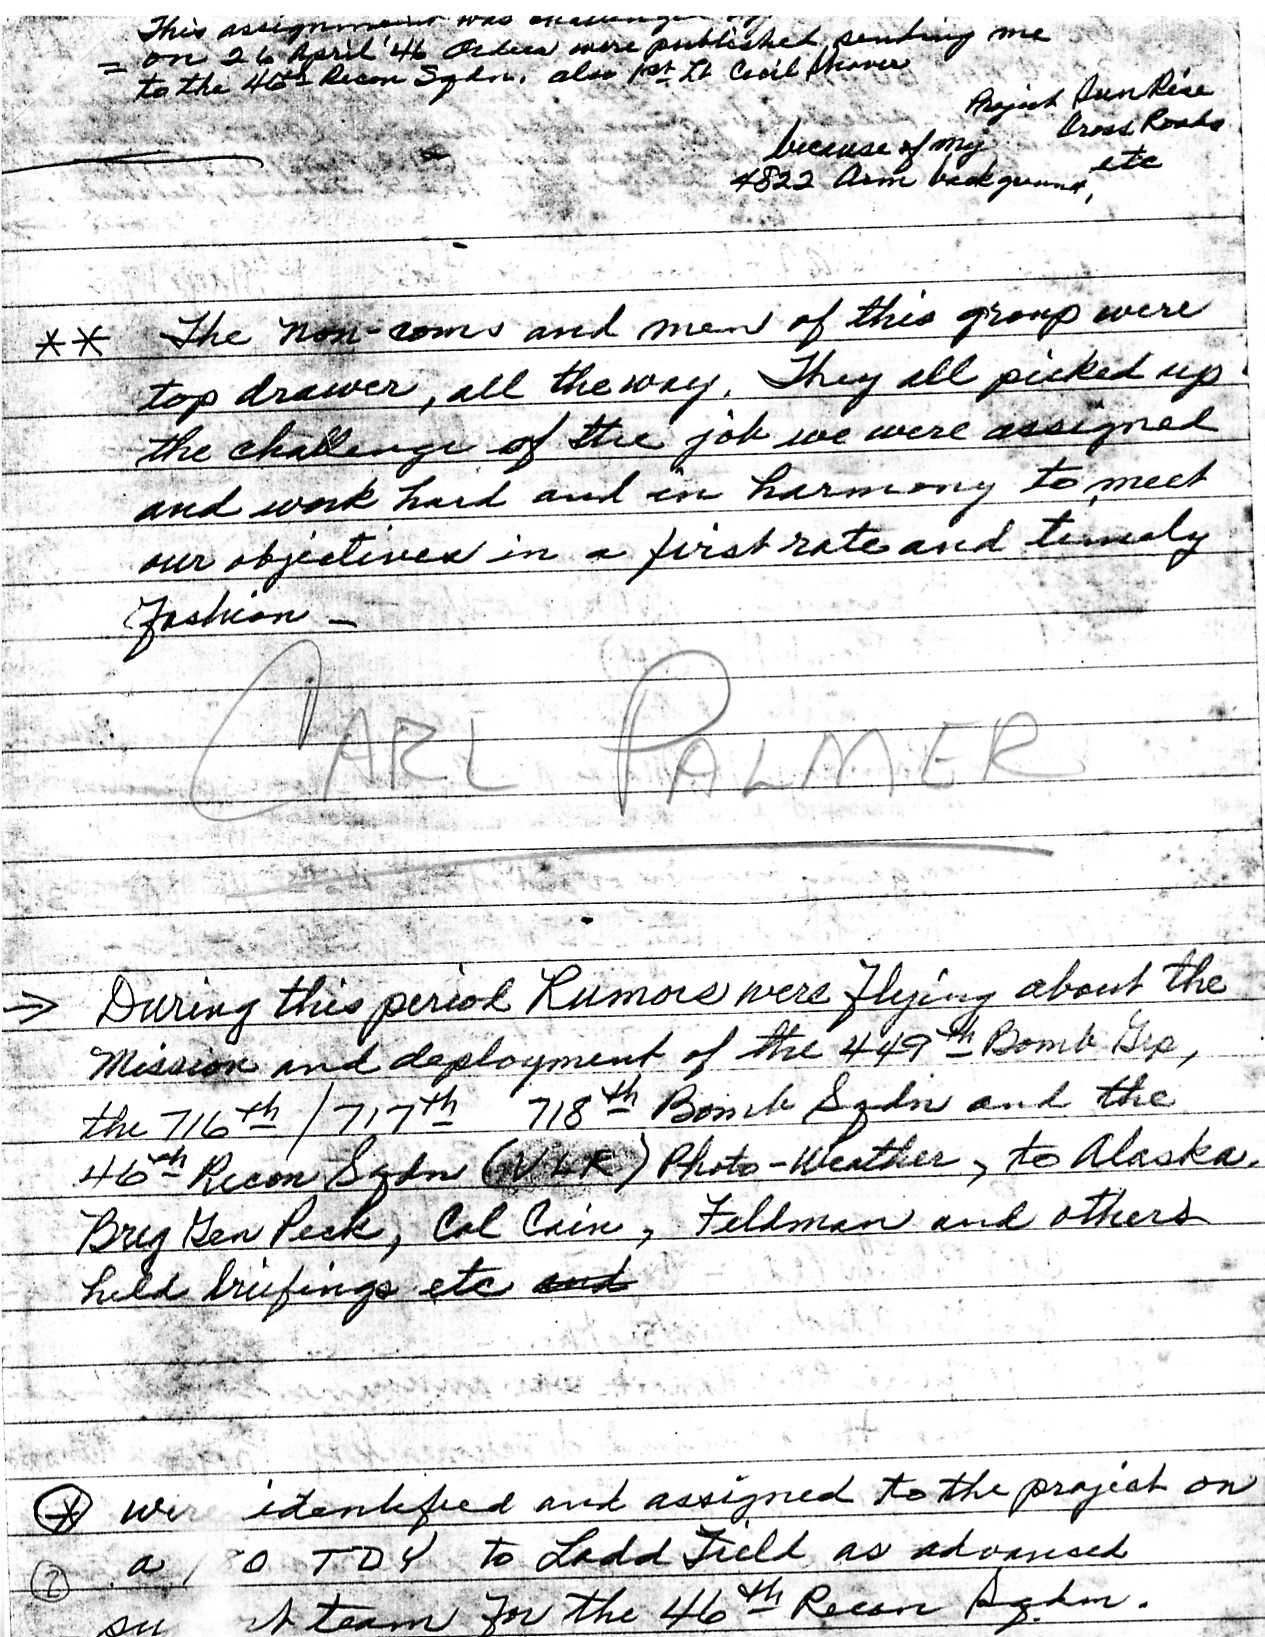 This assignment was
= on 26 April '46 Orders were published sending me
to the 46th Recon Sqdn. also 1st Lt Cecil
Project Sun Rise
Cross Roads
etc
because of my
4822 Arm background,
** The non-coms and men of this group were
top drawer, all the way. They all picked up
the challenge of the job we were assigned
and work hard and in harmony to meet
our objectives in a first rate and timely
fashion –
CARL PALMER
→ During this period Rumors were flying about the
Mission and deployment of the 449th Bomb Grp,
the 716th / 717th 718th Bomb Sqdn and the
46th Recon Sqdn (VLR) Photo-Weather, to Alaska.
Brig Gen Peck, Col Cain, Feldman and others
held briefings etc and
* were identified and assigned to the project on
② a TDY to Ladd Field as advanced
team for the 46th Recon Sqdn.